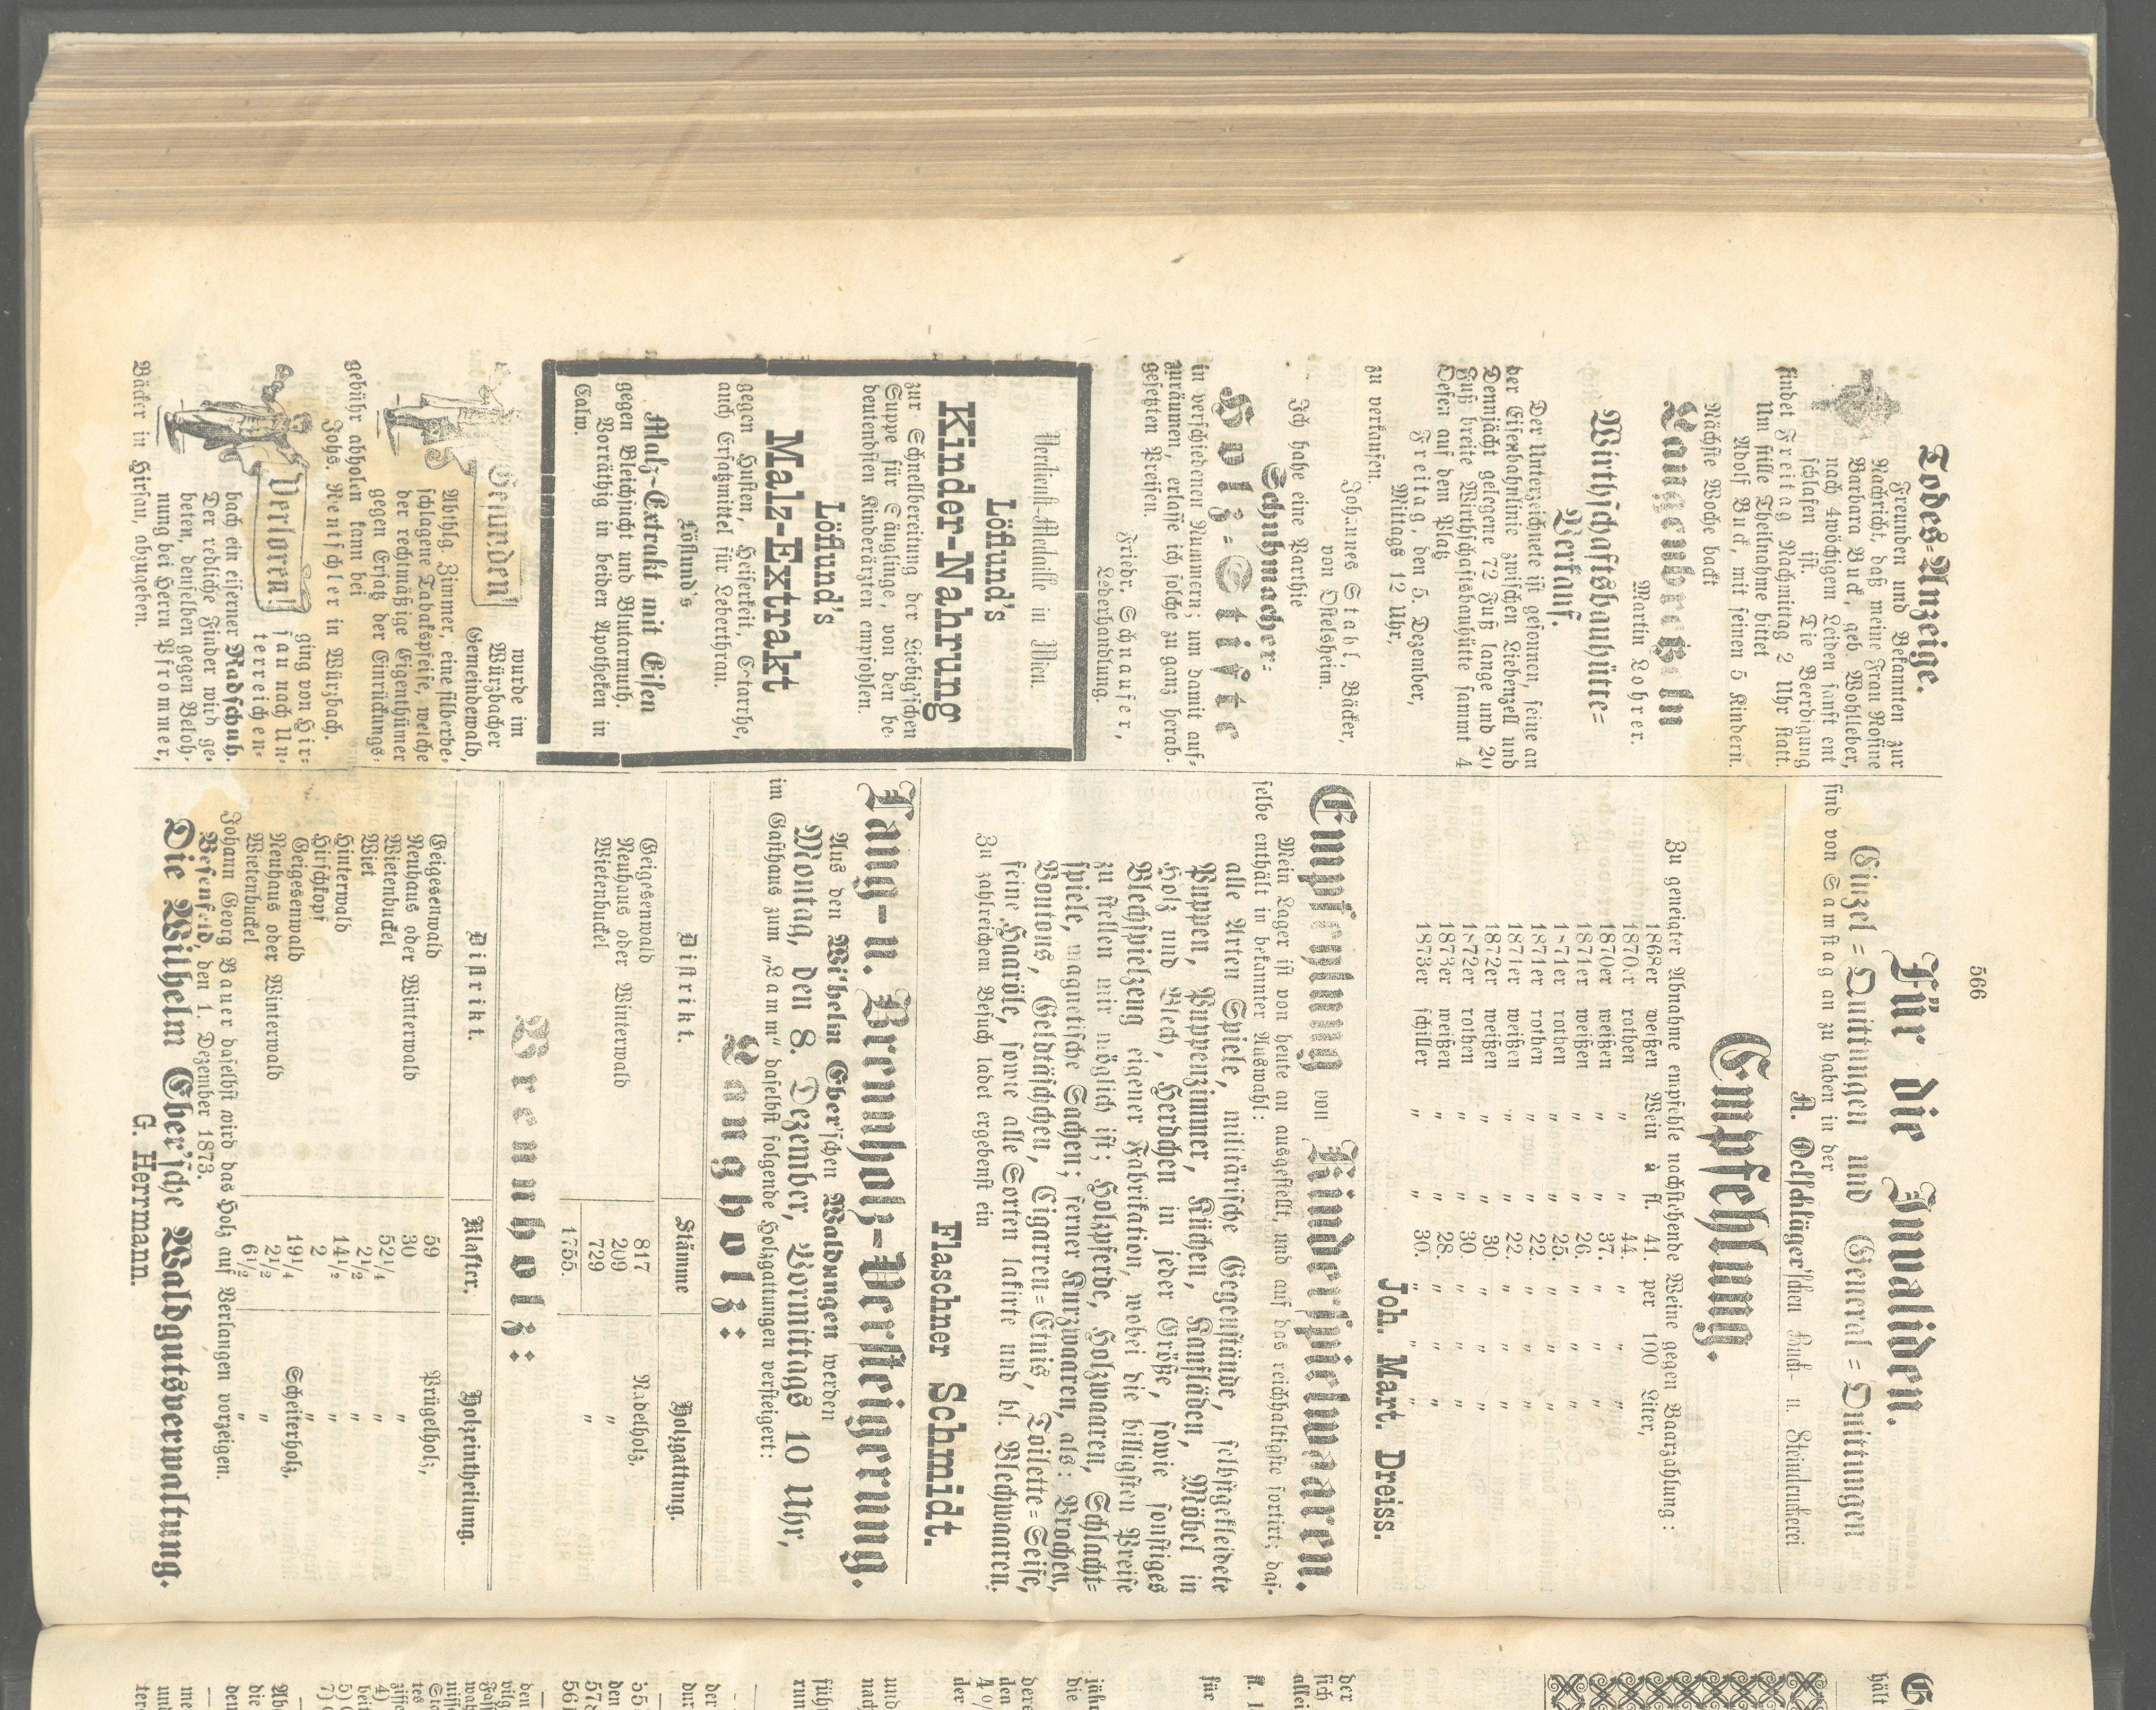 566
Todes-Anzeige.
Freunden und Bekannten zur
Nachricht, daß meine Frau Rosine
Barbara Buck, geb. Wohlleber,
nach 4wöchigem Leiden sanft ent
schlafen ist. Die Beerdigung
findet Freitag Nachmittag 2 Uhr statt.
Um stille Theilnahme bittet
Adolf Buck, mit seinen 5 Kindern.
Nächste Woche backt
Laugenbretzeln
Martin Lohrer.
Wirthschaftsbauhütte-
Verkauf.
Der Unterzeichnete ist gesonnen, seine an
der Eisenbahnlinie zwischen Liebenzell und
Demnächt gelegene 72 Fuß lange und 20
Fuß breite Wirthschaftsbauhütte sammt 4
Oefen auf dem Platz
Freitag, den 5. Dezember,
Mittags 12 Uhr,
zu verkaufen.
Johannes Stahl, Bäcker,
von Ostelsheim.
Ich habe eine Parthie
Schuhmacher-
Holz-Stifte
in verschiedenen Nummern; um damit auf-
zuräumen, erlasse ich solche zu ganz herab-
gesetzten Preisen.
Friedr. Schnaufer,
Lederhandlung.
Verdienst-Medaille in Wien.
Löflund's
Kinder-Nahrung
zur Schnellbereitung der Liebig'schen
Suppe für Säuglinge, von den be-
deutendsten Kinderärzten empfohlen.
Löflund's
Malz-Extrakt
gegen Husten, Heiserkeit, Catarrhe,
auch Ersatzmittel für Leberthran.
Löflund's
Malz-Extrakt mit Eisen
gegen Bleichsucht und Blutarmuth.
Vorräthig in beiden Apotheken in
Calw.
Gefunden
wurde im
Würzbacher
Gemeindewald,
Abthlg. Zimmer, eine silberbe-
schlagene Tabakspfeife, welche
der rechtmäßige Eigenthümer
gegen Ersatz der Einrückungs-
gebühr abholen kann bei
Johs. Rentschler in Würzbach.
Verloren
ging von Hir-
sau nach Un-
terreichen-
bach ein eiserner Radschuh.
Der redliche Finder wird ge-
beten, denselben gegen Beloh-
nung bei Herrn Pfrommer,
Bäcker in Hirsau, abzugeben.
Für die Invaliden.
Einzel-Quittungen und General-Quittungen
sind von Samstag an zu haben in der
A. Oelschläger'schen Buch- u. Steindruckerei
Empfehlung.
Zu geneigter Abnahme empfehle nachstehende Weine gegen Baarzahlung:
1868er weißen Wein à fl. 41. per 100 Liter,
1870er rothen " " 44. " " "
1870er weißen " " 37. " " "
1871er weißen " " 26. " " "
1871er rothen " " 25. " " "
1871er rothen " " 22. " " "
1871er weißen " " 22. " " "
1872er weißen " " 30. " " "
1872er rothen " " 30. " " "
1873er weißen " " 28. " " "
1873er schiller " " 30. " " "
Joh. Mart. Dreiss.
Empfehlung von Kinderspielwaaren.
Mein Lager ist von heute an ausgestellt, und auf das reichhaltigste sortirt; das-
selbe enthält in bekannter Auswahl:
alle Arten Spiele, militärische Gegenstände, selbstgekleidete
Puppen, Puppenzimmer, Küchen, Kaufläden, Möbel in
Holz und Blech, Herdchen in jeder Größe, sowie sonstiges
Blechspielzeug eigener Fabrikation, wobei die billigsten Preise
zu stellen mir möglich ist; Holzpferde, Holzwaaren, Schlacht-
spiele, magnetische Sachen; ferner Kurzwaaren, als: Brochen,
Boutons, Geldtäschchen, Cigarren-Etuis, Toilette-Seife,
feine Haaröle, sowie alle Sorten lakirte und bl. Blechwaaren.
Zu zahlreichem Besuch ladet ergebenst ein
Flaschner Schmidt.
Lang- u. Brennholz-Versteigerung.
Aus den Wilhelm Eber'schen Waldungen werden
Montag, den 8. Dezember, Vormittags 10 Uhr,
im Gasthaus zum „Lamm“ daselbst folgende Holzgattungen versteigert:
Langholz:
Distrikt. Stämme Holzgattung.
Geigesenwald 817 Nadelholz,
Neuhaus oder Winterwald 209 "
Wietenbuckel 729 "
1755.
Brennholz:
Distrikt. Klafter. Holzeintheilung.
Geigesenwald 59 Prügelholz,
Neuhaus oder Winterwald 30 "
Wietenbuckel 52 1/4 "
Wiet 2 1/2 "
Hinterwald 14 1/2 "
Hirschkopf 2 "
Geigesenwald 19 1/4 Scheiterholz,
Neuhaus oder Winterwald 2 1/2 "
Wietenbuckel 6 1/2 "
Johann Georg Bauer daselbst wird das Holz auf Verlangen vorzeigen.
Besenfeld, den 1. Dezember 1873.
Die Wilhelm Eber'sche Waldgutsverwaltung.
G. Herrmann.